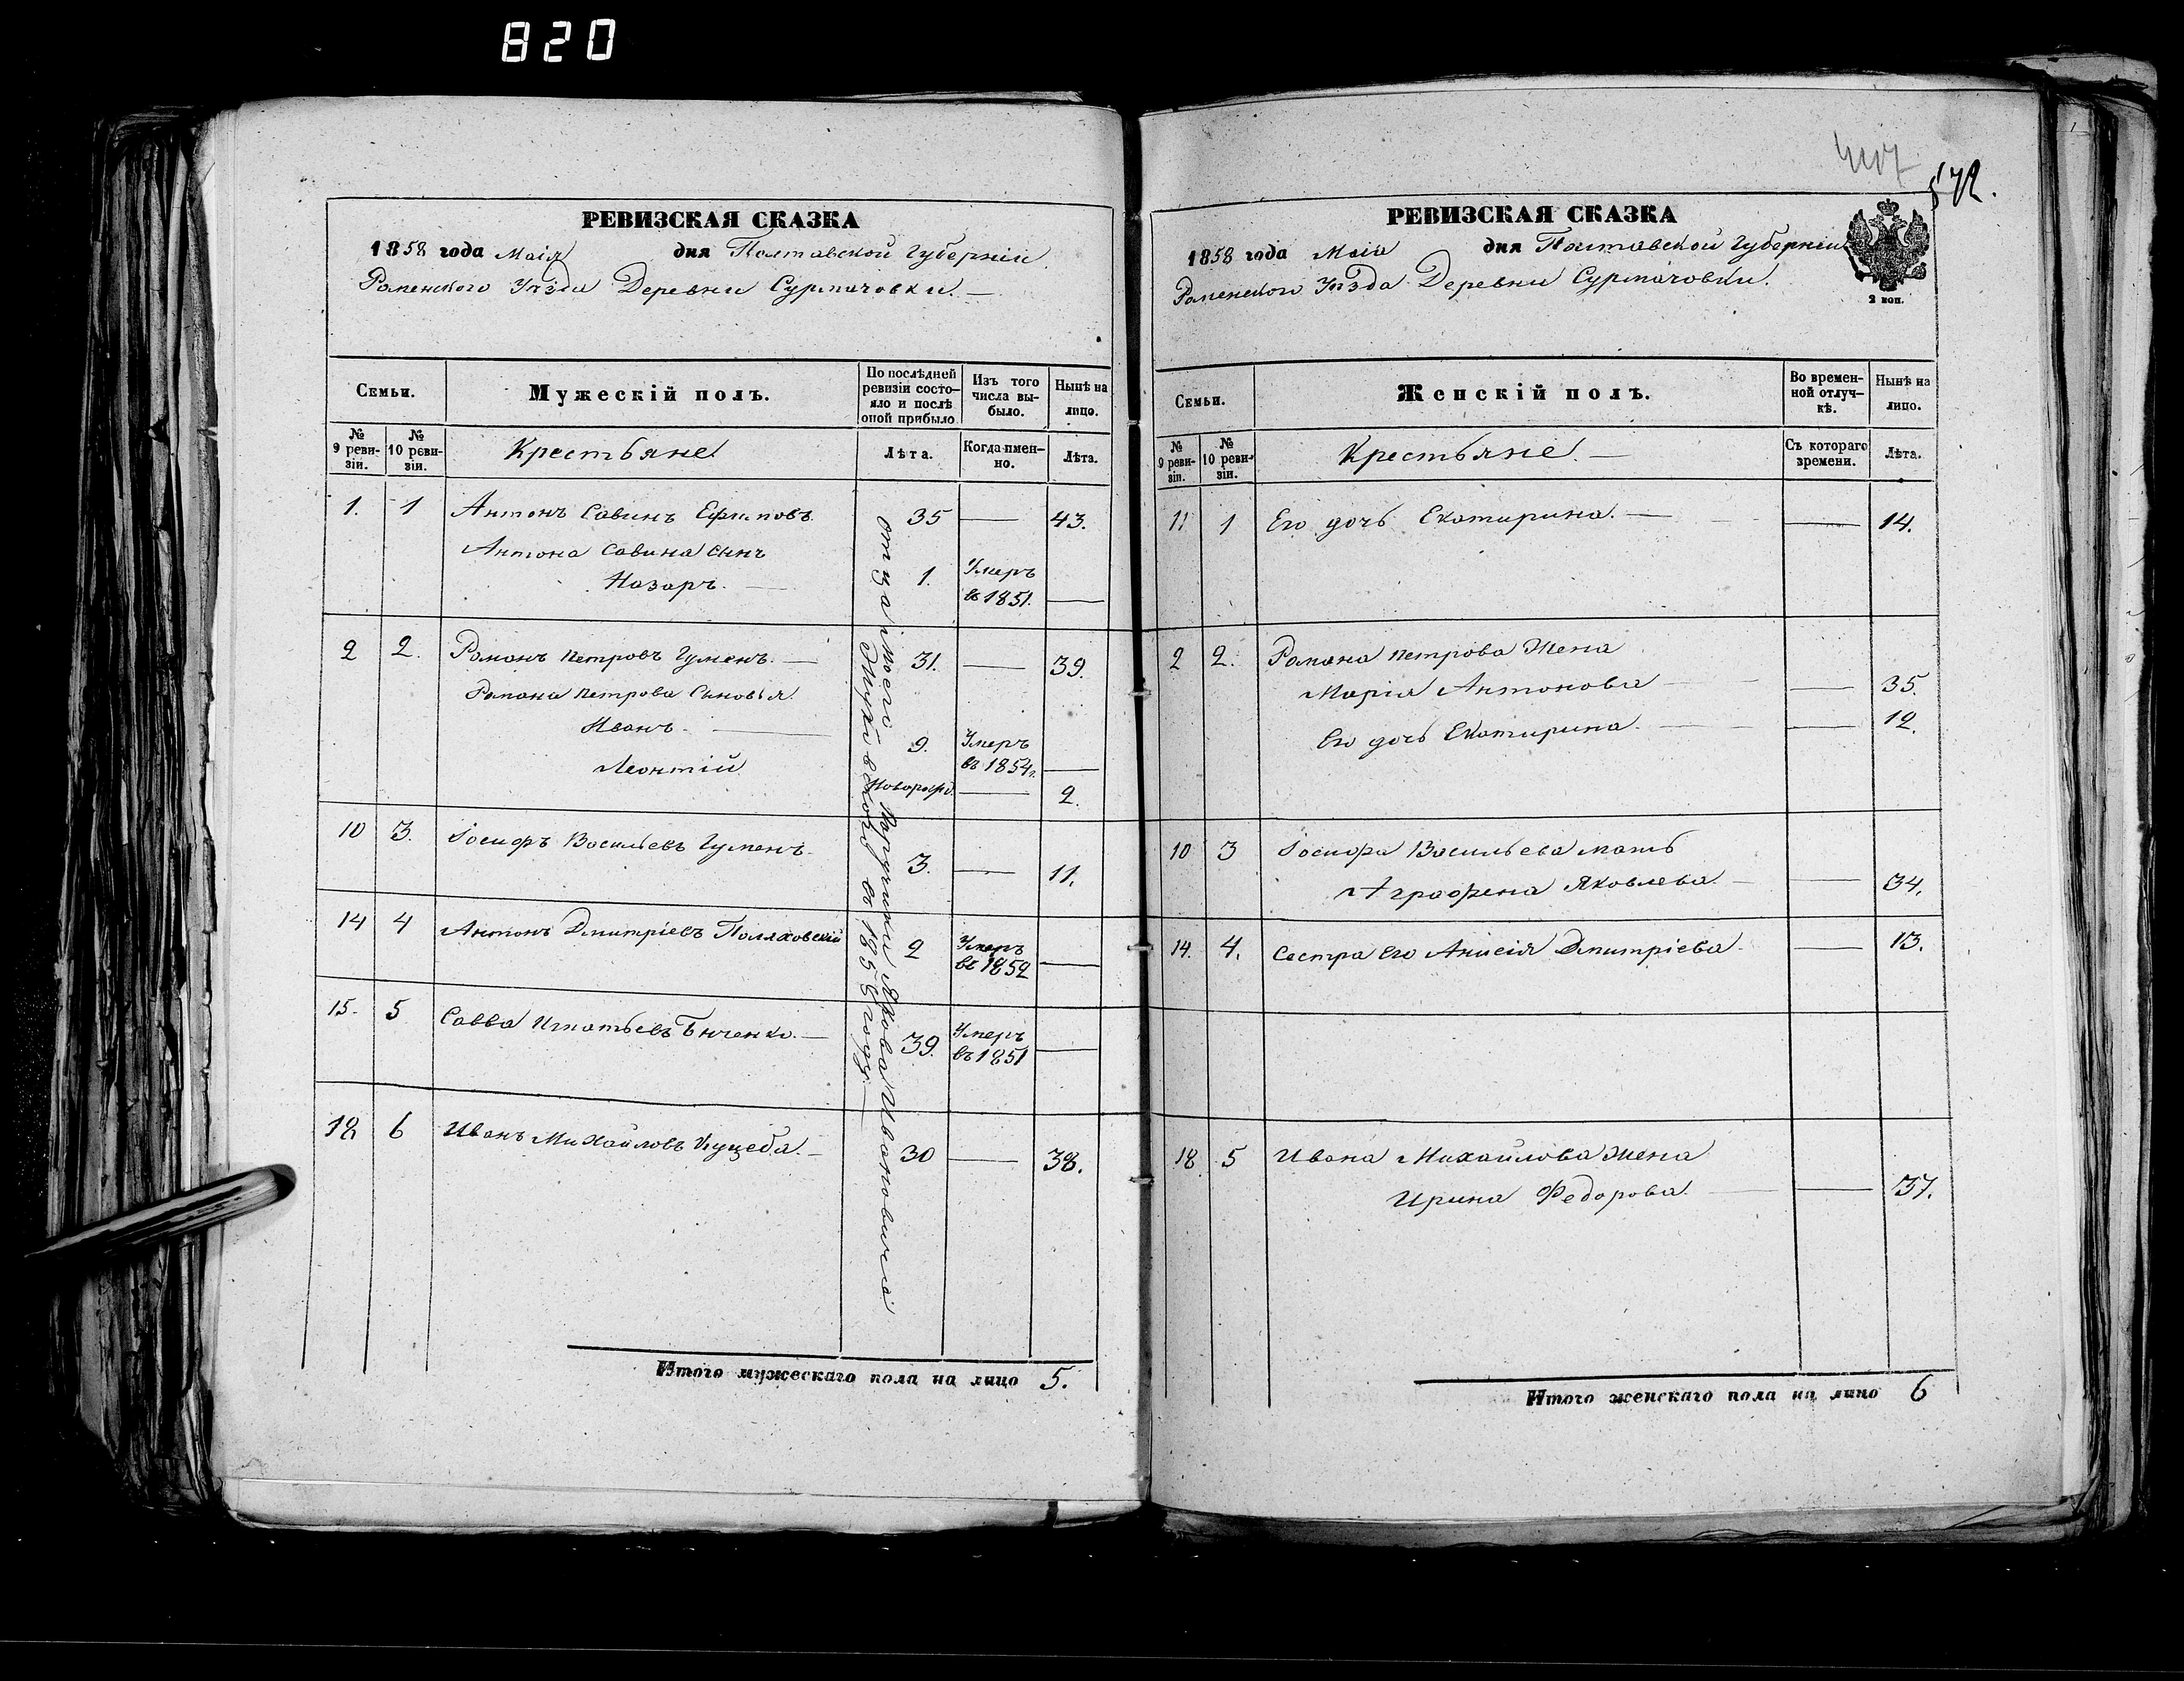 820
РЕВИЗСКАЯ СКАЗКА
1858 года Маія дня Полтавской Губерніи
Роменского Уѣзда Деревни Сурмачовки.
Семьи.
Мужескій полъ.
По послѣдней ревизіи состо-
яло и послѣ
оной прибыло
Изъ того
числа вы-
было.
Нынѣ на
лицо.
№
9 реви-
зіи.
№
10 реви-
зіи.
Крестьяне
Лѣта.
Когда имен-
но.
Лѣта.
1. 1 Антонъ Савинъ 35 — 43.
Антона Савина сынъ
Назаръ. — 1. Умеръ
въ 1851. —
2 2. Романъ Петровъ Гуменъ. — 31. — 39.
Романа Петрова Сыновья
Иванъ. — 9. Умеръ
въ 1854г. —
Леонтій Новорожд. — 2.
10 3. Іосифъ Васильевъ Гуменъ. 3. — 11.
14 4 Антонъ Дмитріевъ Поляковскій 2 Умеръ
въ 1852 —
15. 5 Савва Игнатьевъ — 39. Умеръ
въ 1851 —
18 6 Иванъ Михайловъ Куцеба. — 30 — 38.
отца моего Якова Ивановича
въ 185 году. —
Итого мужескаго пола на лицо 5.
572.
РЕВИЗСКАЯ СКАЗКА
1858 года Маія дня Полтавской Губерніи
Роменского Уѣзда Деревни Сурмачовки.
2 коп.
Семьи.
Женскій полъ.
Во времен-
ной отлуч-
кѣ.
Нынѣ на
лицо.
№
9 реви-
зіи.
№
10 реви-
зіи.
Крестьяне. —
Съ котораго
времени.
Лѣта.
11 1 Его дочь Екатирина. — — 14.
2 2. Романа Петрова Жена
Марія Антонова — — 35.
Его дочь Екатирина. — — 12.
10 3 Іосифа Васильева мать
Аграфена Яковлева. — — 34.
14. 4. Сестра Его Анисія Дмитріева — 13.
18 5 Ивана Михайлова Жена
Ирина Федорова. — — 37.
Итого женскаго пола на лицо 6